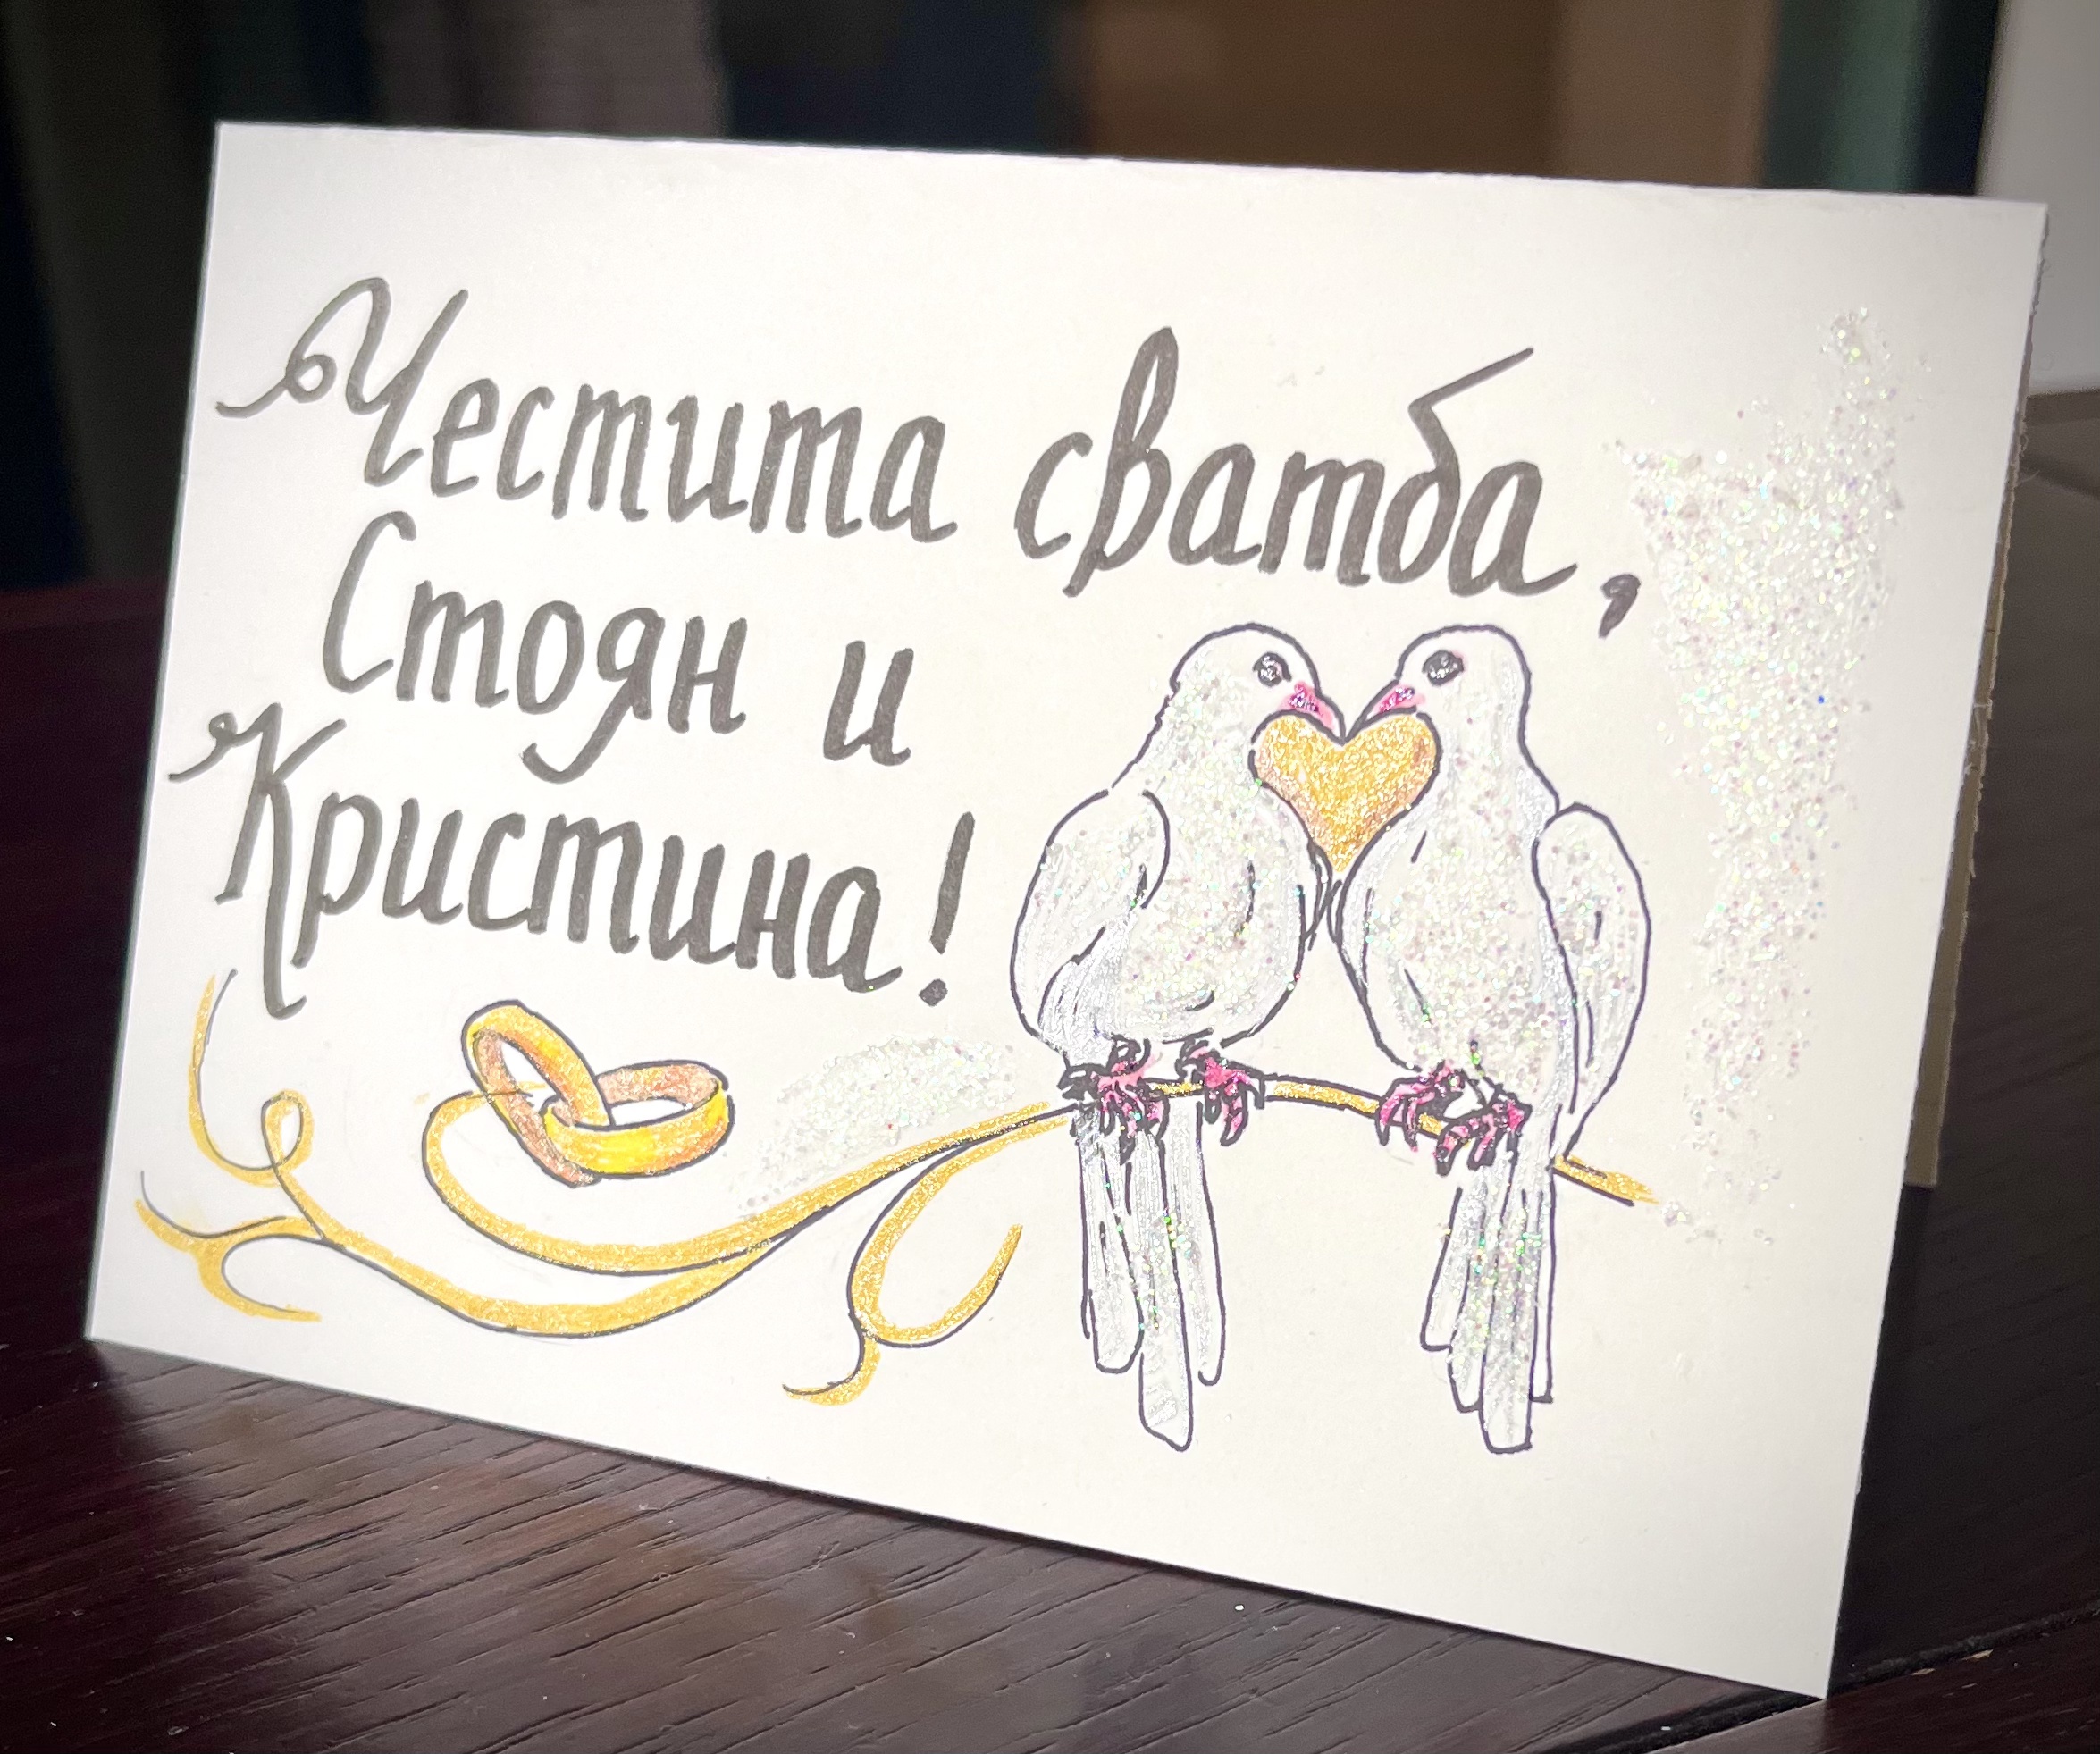 Честита сватба,
Стоян и
Кристина!